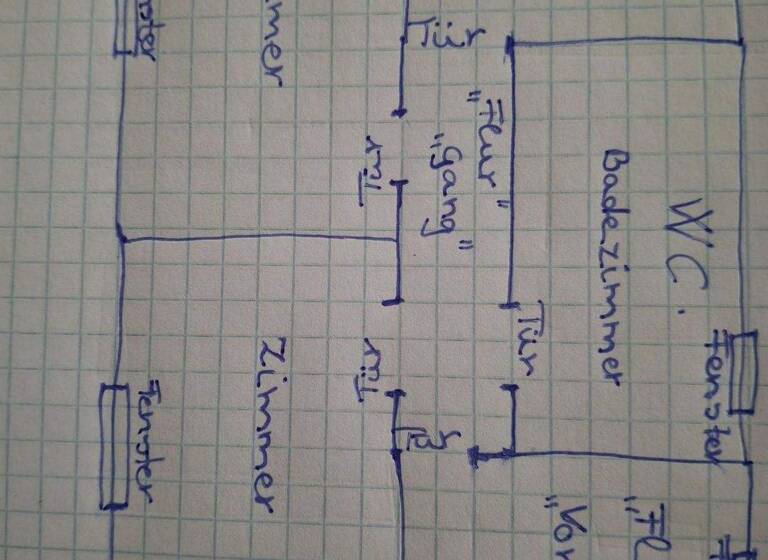 WC.
Badezimmer
Fenster
Tür
"Flur"
"Gang"
Tür
Tür
Tür
Tür
Zimmer
Fenster
mer
nster
"Fl
"Vor